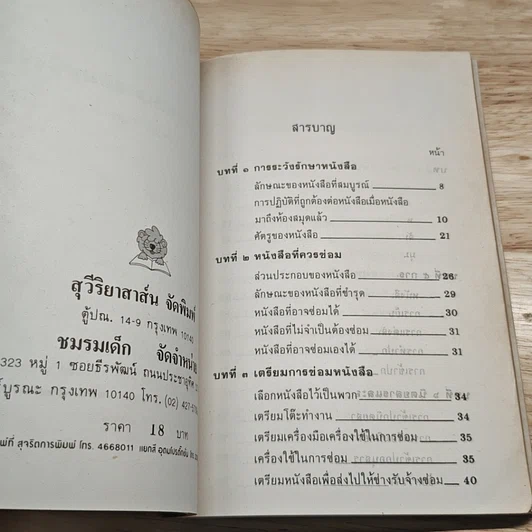 สุวีริยาสาส์น จัดพิมพ์
ตู้ปณ. 14-9 กรุงเทพ 10140
ชมรมเด็ก จัดจำหน่าย
323 หมู่ 1 ซอยธีรพัฒน์ ถนนประชาอุทิศ
บูรณะ กรุงเทพ 10140 โทร. (02) 427-
ราคา 18 บาท
สุจริตการพิมพ์ โทร. 4668011 แยกสี
สารบาญ
หน้า
บทที่ ๑ การระวังรักษาหนังสือ
ลักษณะของหนังสือที่สมบูรณ์ 8
การปฏิบัติที่ถูกต้องต่อหนังสือเมื่อหนังสือ
มาถึงห้องสมุดแล้ว 10
ศัตรูของหนังสือ 21
บทที่ ๒ หนังสือที่ควรซ่อม
ส่วนประกอบของหนังสือ 26
ลักษณะของหนังสือที่ชำรุด 29
หนังสือที่อาจซ่อมได้ 30
หนังสือที่ไม่จำเป็นต้องซ่อม 31
หนังสือที่อาจซ่อมเองได้ 31
บทที่ ๓ เตรียมการซ่อมหนังสือ
เลือกหนังสือไว้เป็นพวก 34
เตรียมโต๊ะทำงาน 34
เตรียมเครื่องมือเครื่องใช้ในการซ่อม 35
เครื่องใช้ในการซ่อม 35
เตรียมหนังสือเพื่อส่งไปให้ช่างรับจ้างซ่อม 40